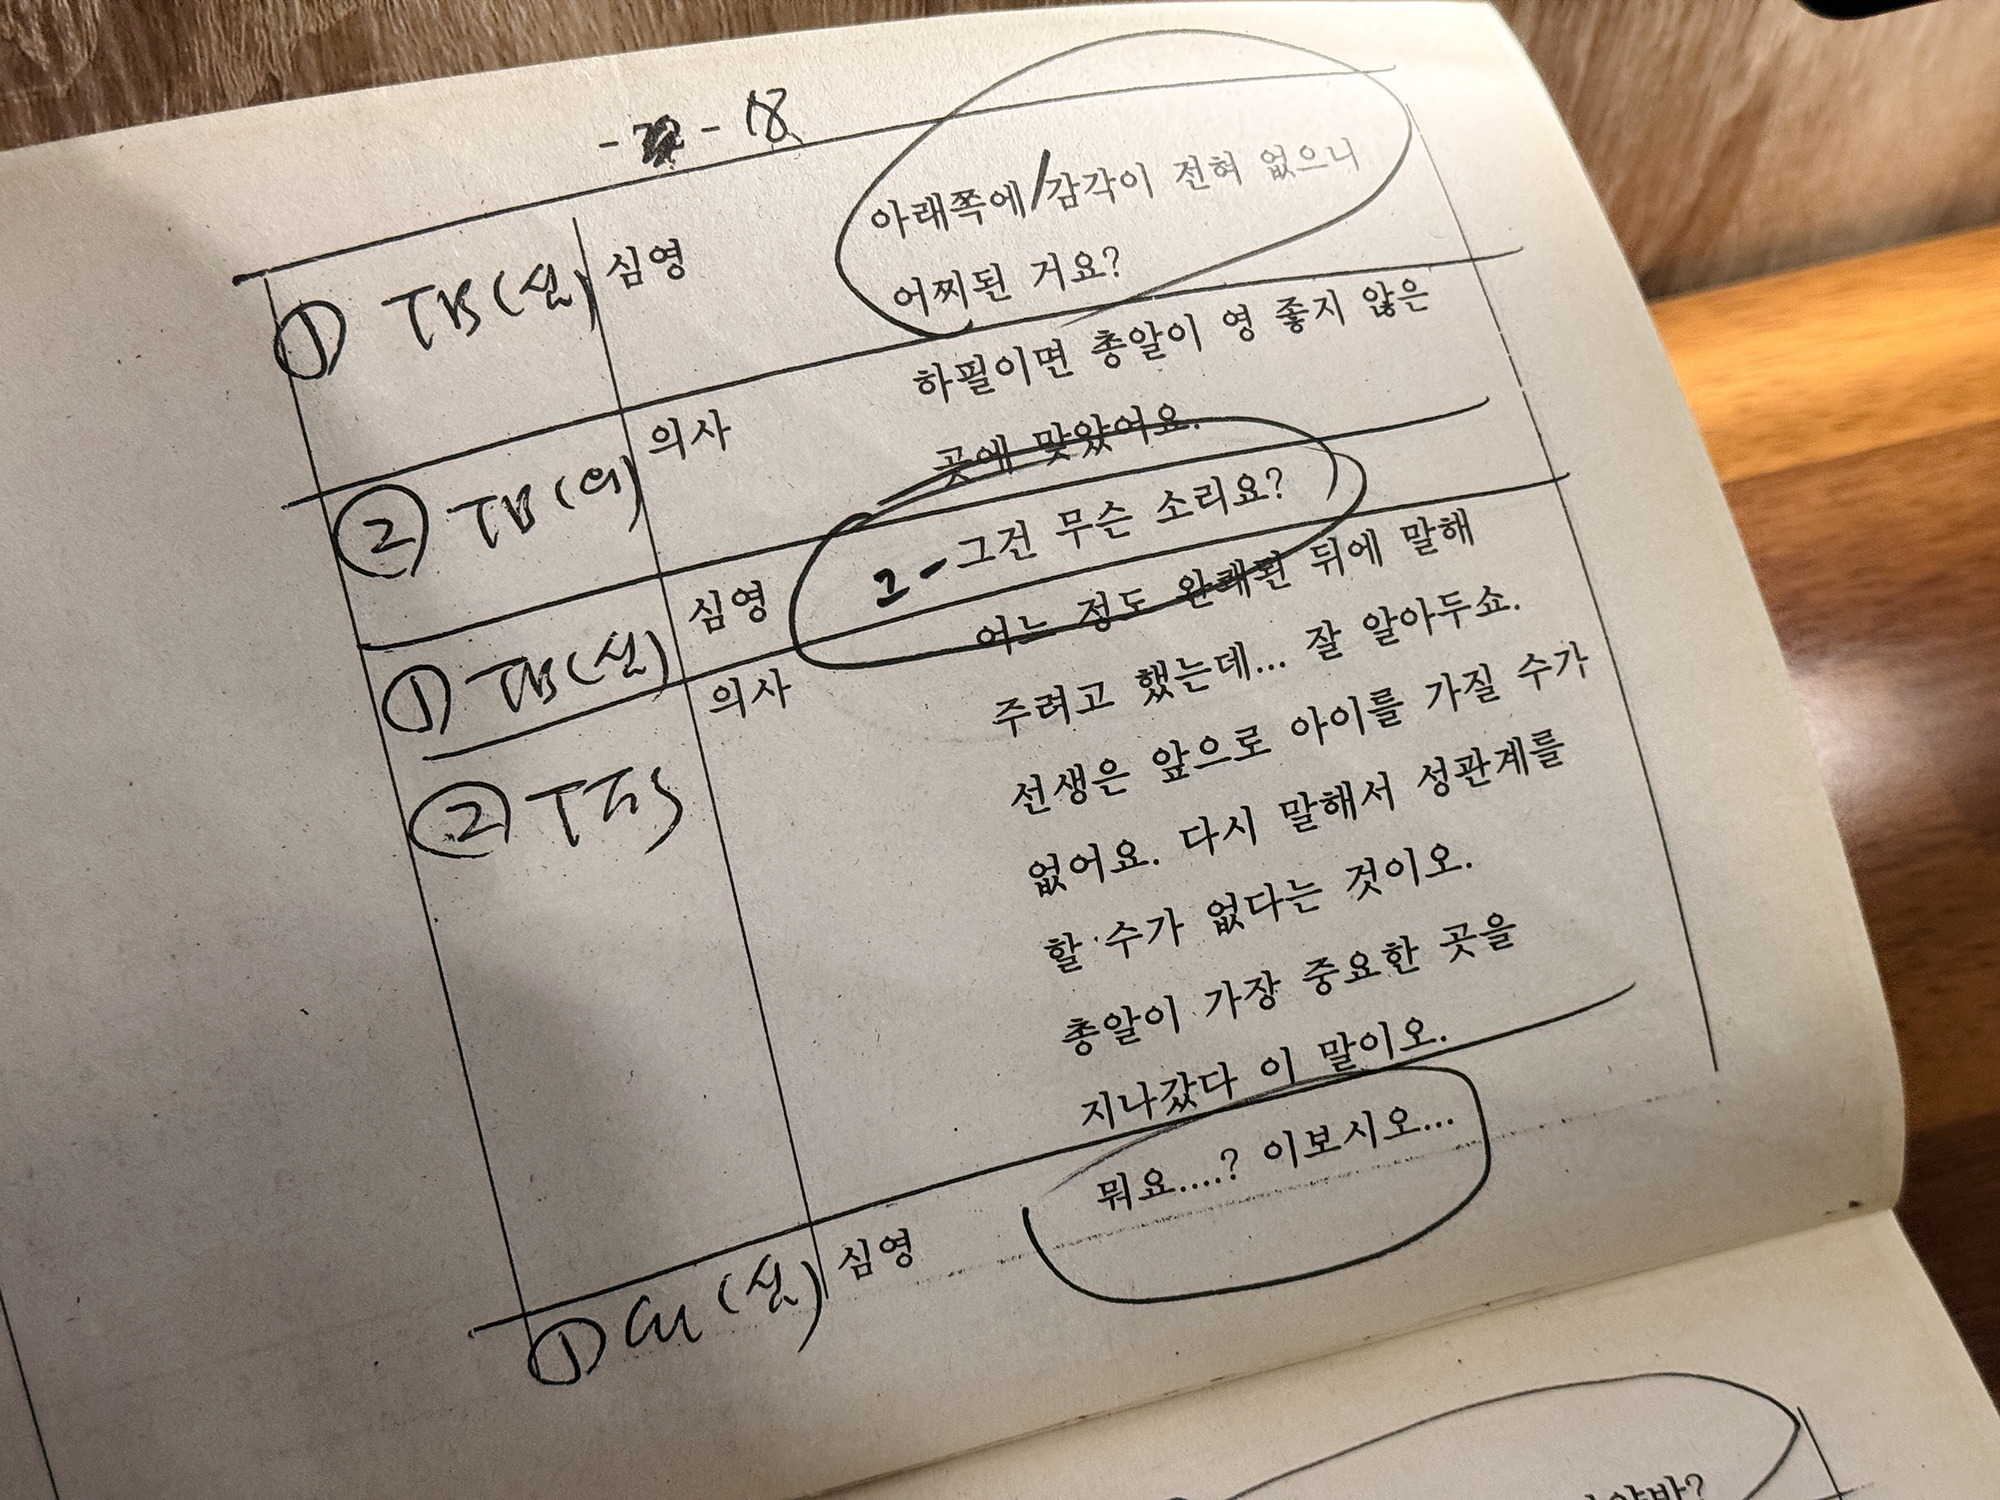 - - 18
① TB(심) 심영 아래쪽에/감각이 전혀 없으니
어찌된 거요?
② TB(의) 의사 하필이면 총알이 영 좋지 않은
곳에 맞았어요.
① TB(심) 심영 그-그건 무슨 소리요?
② TFS 의사 어느 정도 완쾌된 뒤에 말해
주려고 했는데... 잘 알아두쇼.
선생은 앞으로 아이를 가질 수가
없어요. 다시 말해서 성관계를
할 수가 없다는 것이오.
총알이 가장 중요한 곳을
지나갔다 이 말이오.
① CU(심) 심영 뭐요....? 이보시오...